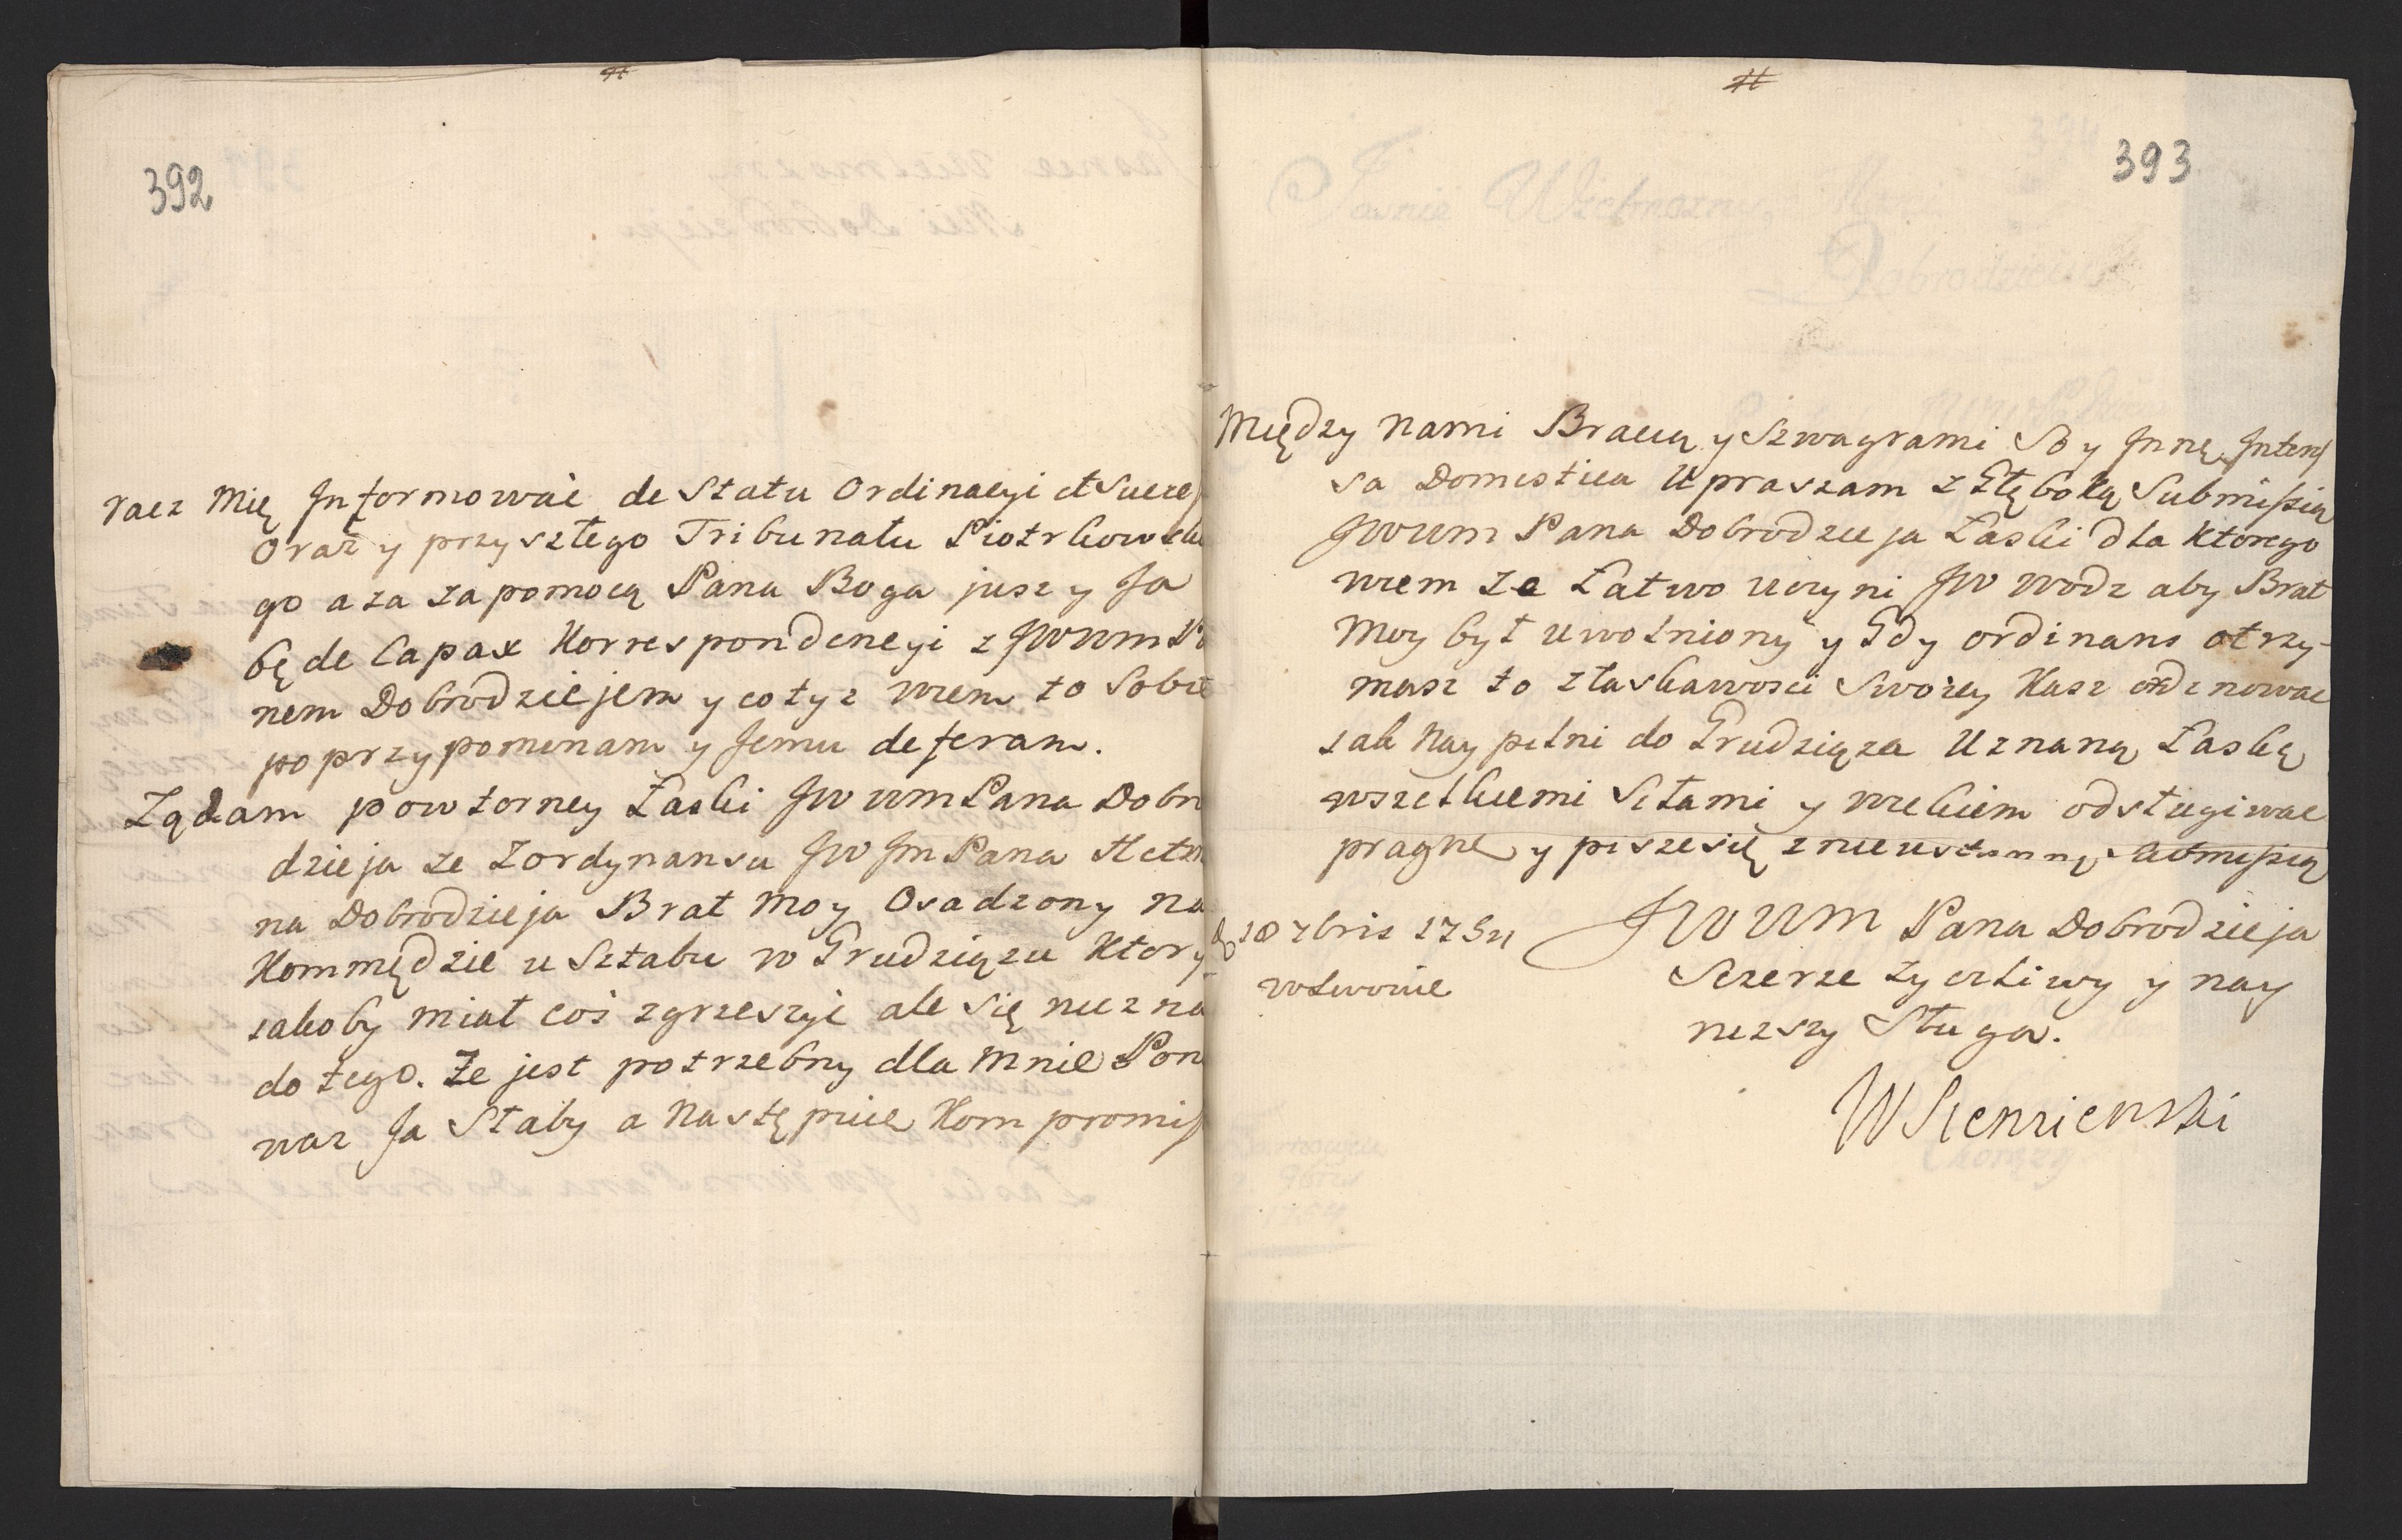 #
392
racz Mię Informować de Statu Ordinacyi et Succes
oraz y przyszłego Tribunału Piotrkowskie
go a za za pomocą Pana Boga jusz y Ja
będe Capax Korrespondencyi z JWWM Pa
nem Dobrodziejem y co tyz wiem to Sobie
po przypomenam y Jemu deferam.
Ządam powtorney Łaski JWWM Pana Dobro
dzieja ze z ordynansu JW Jm Pana Hetm
na Dobrodzieja Brat Moy Osadzony na
Kommędzie u Sztabu w Grudziązu Ktory
jakoby miał coś zgrzeszyć ale się nie zna
do tego. Ze jest potrzebny dla Mnie Pon
waz Ja Słaby a Następnie Kompromis
#
393
Między Nami Bracią y Szwagrami So y Jnne Interes
sa Domestica Upraszam z Głęboką Submissią
JWWM Pana Dobrodzieja Łaski dla Ktorego
wiem ze Łatwo uczyni JW Wodz aby Brat
Moy był uwolniony y Gdy ordinans otrzy-
masz to z łaskawosci Swoiey Kasz
jak Naypełni do Grudziąza Uznaną Łaskę
wszelkiemi Siłami y wiekiem odsługiwac
pragne y pisze się z nieustanną submissią
JWWM Pana Dobrodzieja
d 18 7bris 1754
w Lwowie
Szerze Zyczliwy y nay
niezszy Sługa.
WSienzienski